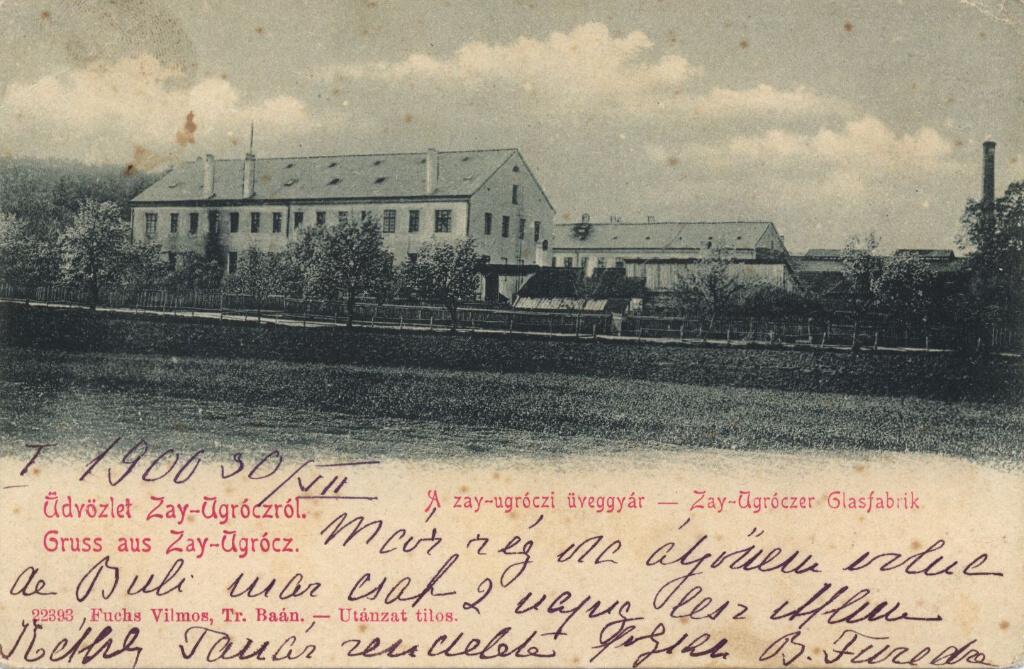 I 1900 30/VII
Üdvözlet Zay-Ugróczról.
A zay-ugróczi üveggyár — Zay-Ugróczer Glasfabrik
Gruss aus Zay-Ugrócz.
Már rég óta átjöttem volna
de Buli már csak 2 napig lesz
22393 Fuchs Vilmos, Tr. Baán. — Utánzat tilos.
Tanár rendelete B. Füredre